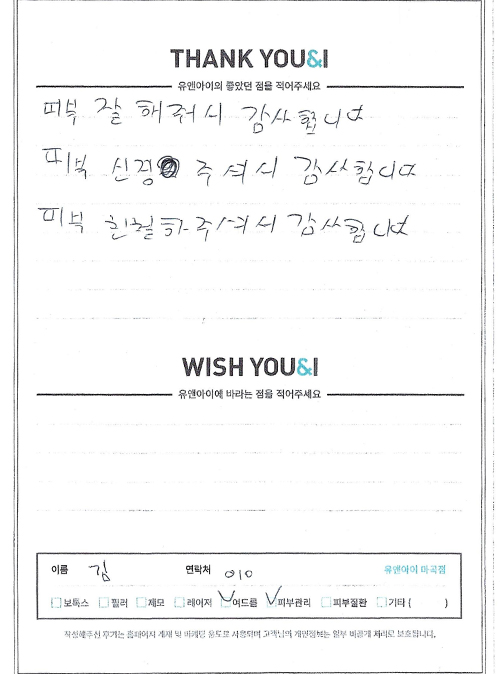 THANK YOU&I
유앤아이의 좋았던 점을 적어주세요
피부 잘 해줘서 감사합니다
피부 신경 주셔서 감사합니다
피부 친절하주셔서 감사합니다
WISH YOU&I
유앤아이에 바라는 점을 적어주세요
이름 김 연락처 010 유앤아이 마곡점
보톡스 필러 제모 레이저 여드름 피부관리 피부질환 기타 ( )
작성해주신 후기는 홈페이지 게재 및 마케팅 용도로 사용되며 고객님의 개인정보는 일부 비공개 처리로 보호됩니다.